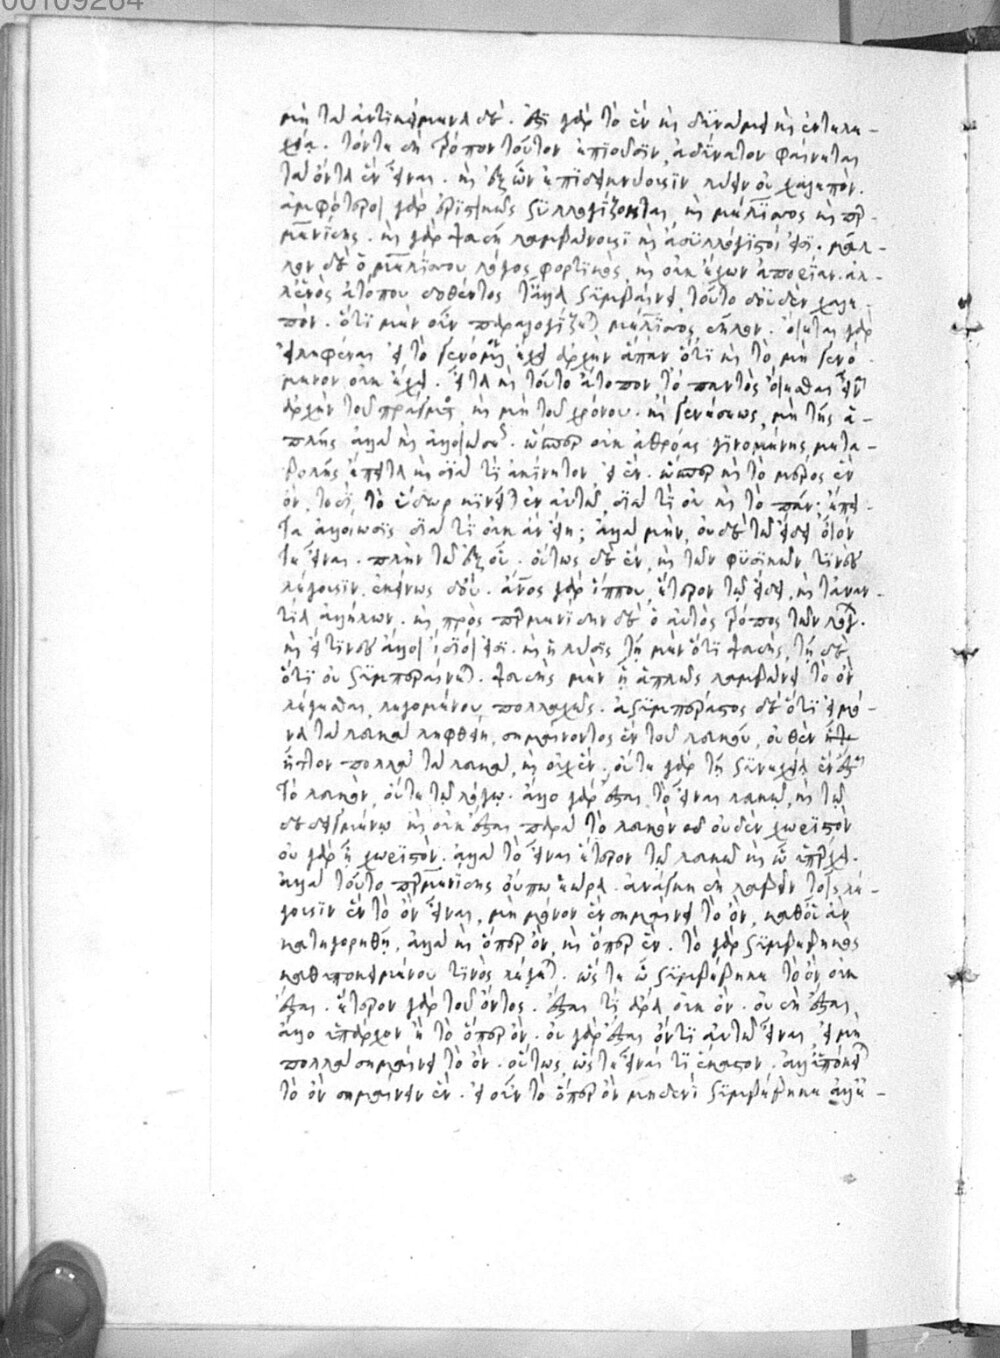 00109264
μὴ τἀντικείμενα δέ. ἔστι γὰρ τὸ ἓν καὶ δυνάμει καὶ ἐντελε-
χείᾳ. τόν τε δὴ τρόπον τοῦτον ἐπιοῦσιν ἀδύνατον φαίνεται
τὰ ὄντα ἓν εἶναι. καὶ ἐξ ὧν ἐπιδεικνύουσιν λύειν οὐ χαλεπόν.
ἀμφότεροι γὰρ ἐριστικῶς συλλογίζονται, καὶ μέλισσος καὶ παρ-
μενίδης. καὶ γὰρ ψευδῆ λαμβάνουσι καὶ ἀσυλλόγιστοί εἰσι. μᾶλ-
λον δὲ ὁ μελίσσου λόγος φορτικὸς καὶ οὐκ ἔχων ἀπορίαν. ἀλ-
λ' ἑνὸς ἀτόπου δοθέντος τἆλλα συμβαίνει, τοῦτο δ' οὐδὲν χαλε-
πόν. ὅτι μὲν οὖν παραλογίζεται μέλισσος δῆλον. οἴεται γὰρ
εἰληφέναι εἰ τὸ γενόμενον ἔχει ἀρχὴν ἅπαν ὅτι καὶ τὸ μὴ γενό-
μενον οὐκ ἔχει. εἶτα καὶ τοῦτο ἄτοπον τὸ παντὸς οἴεσθαι εἶναι
ἀρχὴν τοῦ πράγματος καὶ μὴ τοῦ χρόνου. καὶ γενέσεως μὴ τῆς ἁ-
πλῆς ἀλλὰ καὶ ἀλλοιώσεως. ὥσπερ οὐκ ἀθρόας γινομένης μετα-
βολῆς ἔπειτα καὶ διὰ τί ἀκίνητον εἰ ἕν. ὥσπερ καὶ τὸ μέρος ἓν
ὂν, τοδὶ τὸ ὕδωρ κινεῖται ἐν αὐτῷ, διὰ τί οὐ καὶ τὸ πᾶν; ἔπει-
τα ἀλλοίωσις διὰ τί οὐκ ἂν εἴη; ἀλλὰ μὴν, οὐδὲ τῷ εἴδει οἷόν
τε εἶναι. πλὴν τῷ ἐξ οὗ. οὕτως δὲ ἓν καὶ τῶν φυσικῶν τινὲς
λέγουσιν, ἐκείνως δ' οὔ. ἄνθρωπος γὰρ ἵππου, ἕτερον τῷ εἴδει, καὶ τἀναν-
τία ἀλλήλων. καὶ πρὸς παρμενίδην δὲ ὁ αὐτὸς τρόπος τῶν λόγων.
καὶ εἴ τινες ἄλλοι ἴδιοί εἰσι. καὶ ἡ λύσις τῇ μὲν ὅτι ψευδὴς, τῇ δὲ,
ὅτι οὐ συμπεραίνεται. ψευδὴς μὲν ᾗ ἁπλῶς λαμβάνει τὸ ὂν
λέγεσθαι, λεγομένου πολλαχῶς. ἀσυμπέραντος δὲ ὅτι εἰ μό-
να τὰ λευκὰ ληφθείη, σημαίνοντος ἓν τοῦ λευκοῦ, οὐθὲν
ἧττον πολλὰ τὰ λευκὰ καὶ οὐχ ἕν. οὔτε γὰρ τῇ συνεχείᾳ ἓν ἔσται
τὸ λευκὸν, οὔτε τῷ λόγῳ. ἄλλο γὰρ ἔσται τὸ εἶναι λευκῷ καὶ τῷ
δεδεγμένῳ καὶ οὐκ ἔσται παρὰ τὸ λευκὸν οὐδὲν χωριστὸν
οὐ γὰρ ᾗ χωριστὸν. ἀλλὰ τὸ εἶναι ἕτερον τῷ λευκῷ καὶ ᾧ ὑπάρχει.
ἀλλὰ τοῦτο παρμενίδης οὔπω ἑώρα. ἀνάγκη δὴ λαβεῖν τοῖς λέ-
γουσιν ἓν τὸ ὂν εἶναι, μὴ μόνον ἓν σημαίνει τὸ ὂν, καθ' οὗ ἂν
κατηγορηθῇ, ἀλλὰ καὶ ὅπερ ὂν, καὶ ὅπερ ἕν. τὸ γὰρ συμβεβηκὸς
καθ' ὑποκειμένου τινὸς λέγεται. ὥστε ᾧ συμβέβηκε τὸ ὂν οὐκ
ἔσται. ἕτερον γὰρ τοῦ ὄντος. ἔσται τι ἄρα οὐκ ὄν. οὐ δὴ ἔσται
ἄλλο ὑπάρχον ἢ τὸ ὅπερ ὄν. οὐ γὰρ ἔσται ὄντι αὐτῷ εἶναι, εἰ μὴ
πολλὰ σημαίνει τὸ ὄν. οὕτως, ὥστε εἶναί τι ἕκαστον. ἀλλ' ὑπόκειται
τὸ ὂν σημαίνειν ἕν. εἰ οὖν τὸ ὅπερ ὂν μηδενὶ συμβέβηκε ἀλλὰ